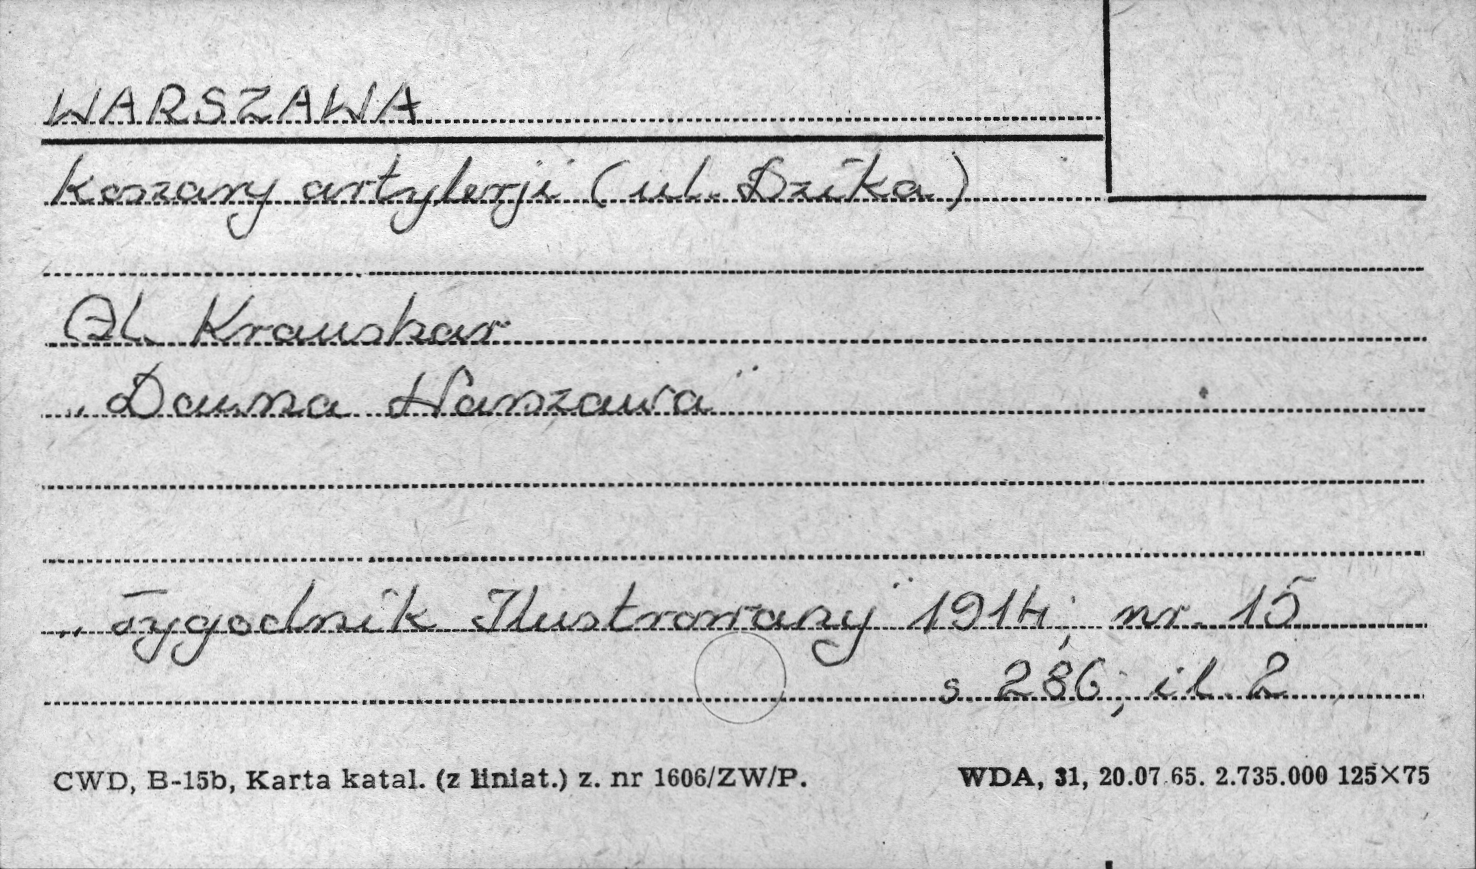 WARSZAWA
Koszary artylerji (ul. Dzika)
Al. Kraushar
„Dawna Warszawa"
„Tygodnik Ilustrowany" 1914; nr. 15
s. 286; il. 2
CWD, B-15b, Karta katal. (z liniat.) z. nr 1606/ZW/P. WDA, 31, 20.07.65. 2.735.000 125×75